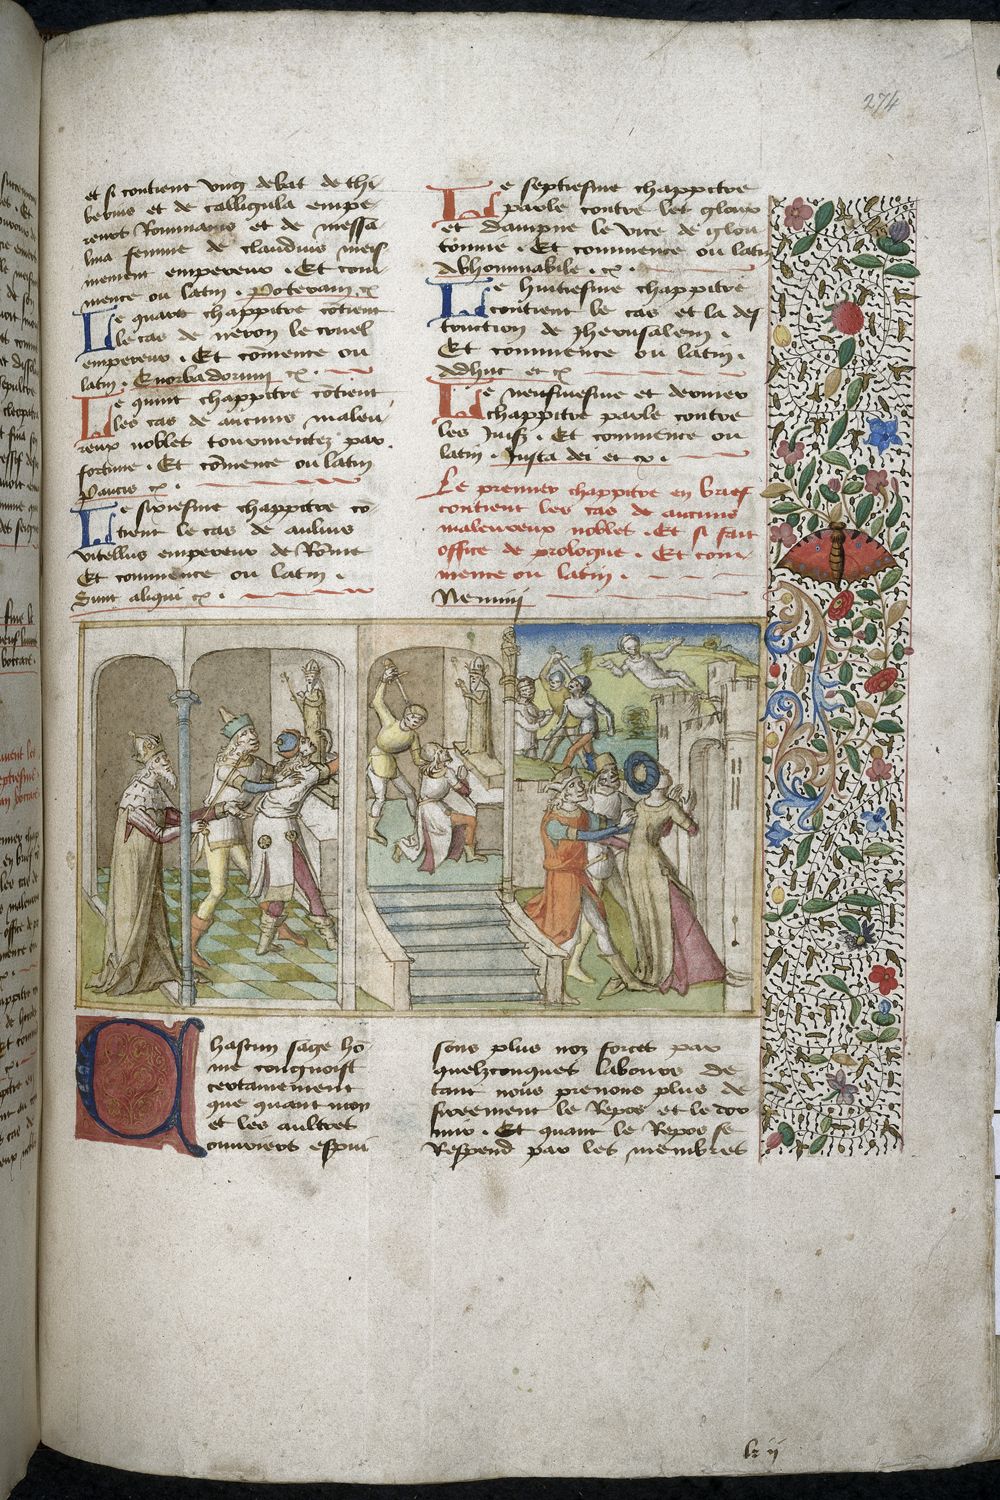 274
et si contient ung debat de thi
berius et de calligula empe
reurs Rommains et de messa
lina femme de claudius meis
mement empereur . Et com
mence ou latin . Poteram . cx
Le quart chappitre cōtient
le cas de neron le cruel
empereur . Et cōmence ou
latin . Enorbadorum cx .
Le quint chappitre cōtient
les cas de aucuns maleu
reux nobles tourmentez par
fortune . Et cōmence ou latin
Paucis cx .
Le sixiesme chappitre cō
tient le cas de aulus
vitellus empereur de Rōme
Et commence ou latin .
Sunt aliqui cx .
Le septiesme chappitre
parle contre les glous
et dampne le vice de glou
tonnie . Et commence ou latin
Abhominabile . cx .
Le huitiesme chappitre
contient le cas et la des
truction de Jherusalem .
Et commence ou latin .
Adhuc et cx
Le neufuiesme et dernier
chappitre parle contre
les Juifz . Et commence ou
latin . Justa dei et cx .
Le premier chappitre en brief
contient les cas de aucuns
maleureux nobles . Et si fait
office de prologue . Et com
mence ou latin .
Nemini
Chascun sage hō
me congnoist
certainement
que quant nous
et les aultres
ouuriers espui
sons plus noz forces par
quelzconques labours de
tant nous prenons plus de
sirement le Repos et le dor
mir . Et quant le Repos se
Respend par les membres